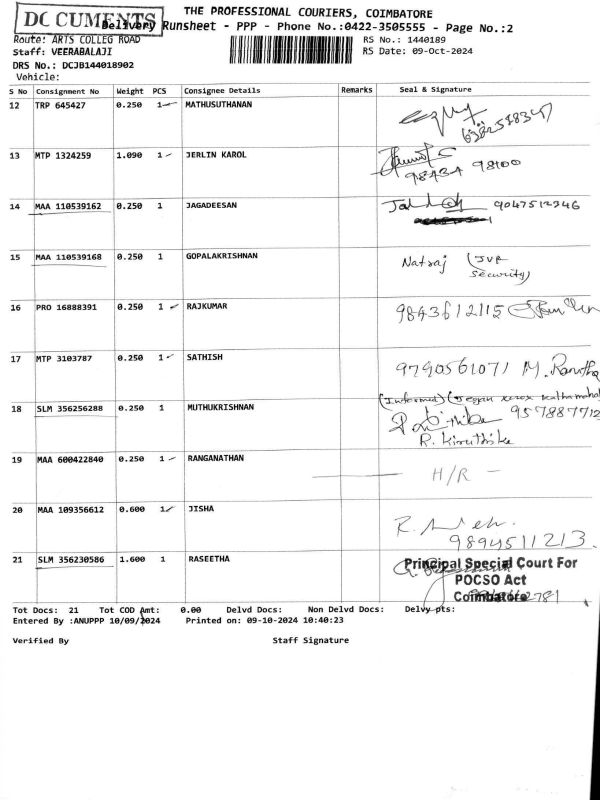 DC CUMENTS
THE PROFESSIONAL COURIERS, COIMBATORE
Delivery Runsheet - PPP - Phone No.:0422-3505555 - Page No.:2
Route: ARTS COLLEG ROAD
RS No.: 1440189
Staff: VEERABALAJI
RS Date: 09-Oct-2024
DRS No.: DCJB144018902
Vehicle:
S No Consignment No Weight PCS Consignee Details Remarks Seal & Signature
12 TRP 645427 0.250 1 MATHUSUTHANAN
6382518347
13 MTP 1324259 1.090 1 JERLIN KAROL
98434 98100
14 MAA 110539162 0.250 1 JAGADEESAN 9047512346
15 MAA 110539168 0.250 1 GOPALAKRISHNAN
Natraj (JVR
Security)
16 PRO 16888391 0.250 1 RAJKUMAR
9843612115
17 MTP 3103787 0.250 1 SATHISH
9790561071 M.
(Informed)
18 SLM 356256288 0.250 1 MUTHUKRISHNAN
957887712
R. Kiruthika
19 MAA 600422840 0.250 1 RANGANATHAN
H/R -
20 MAA 109356612 0.600 1 JISHA
9894511213.
21 SLM 356230586 1.600 1 RASEETHA
Principal Special Court For
POCSO Act
Coimbatore
Tot Docs: 21 Tot COD Amt: 0.00 Delvd Docs: Non Delvd Docs: Delvy pts:
Entered By :ANUPPP 10/09/2024 Printed on: 09-10-2024 10:40:23
Verified By Staff Signature